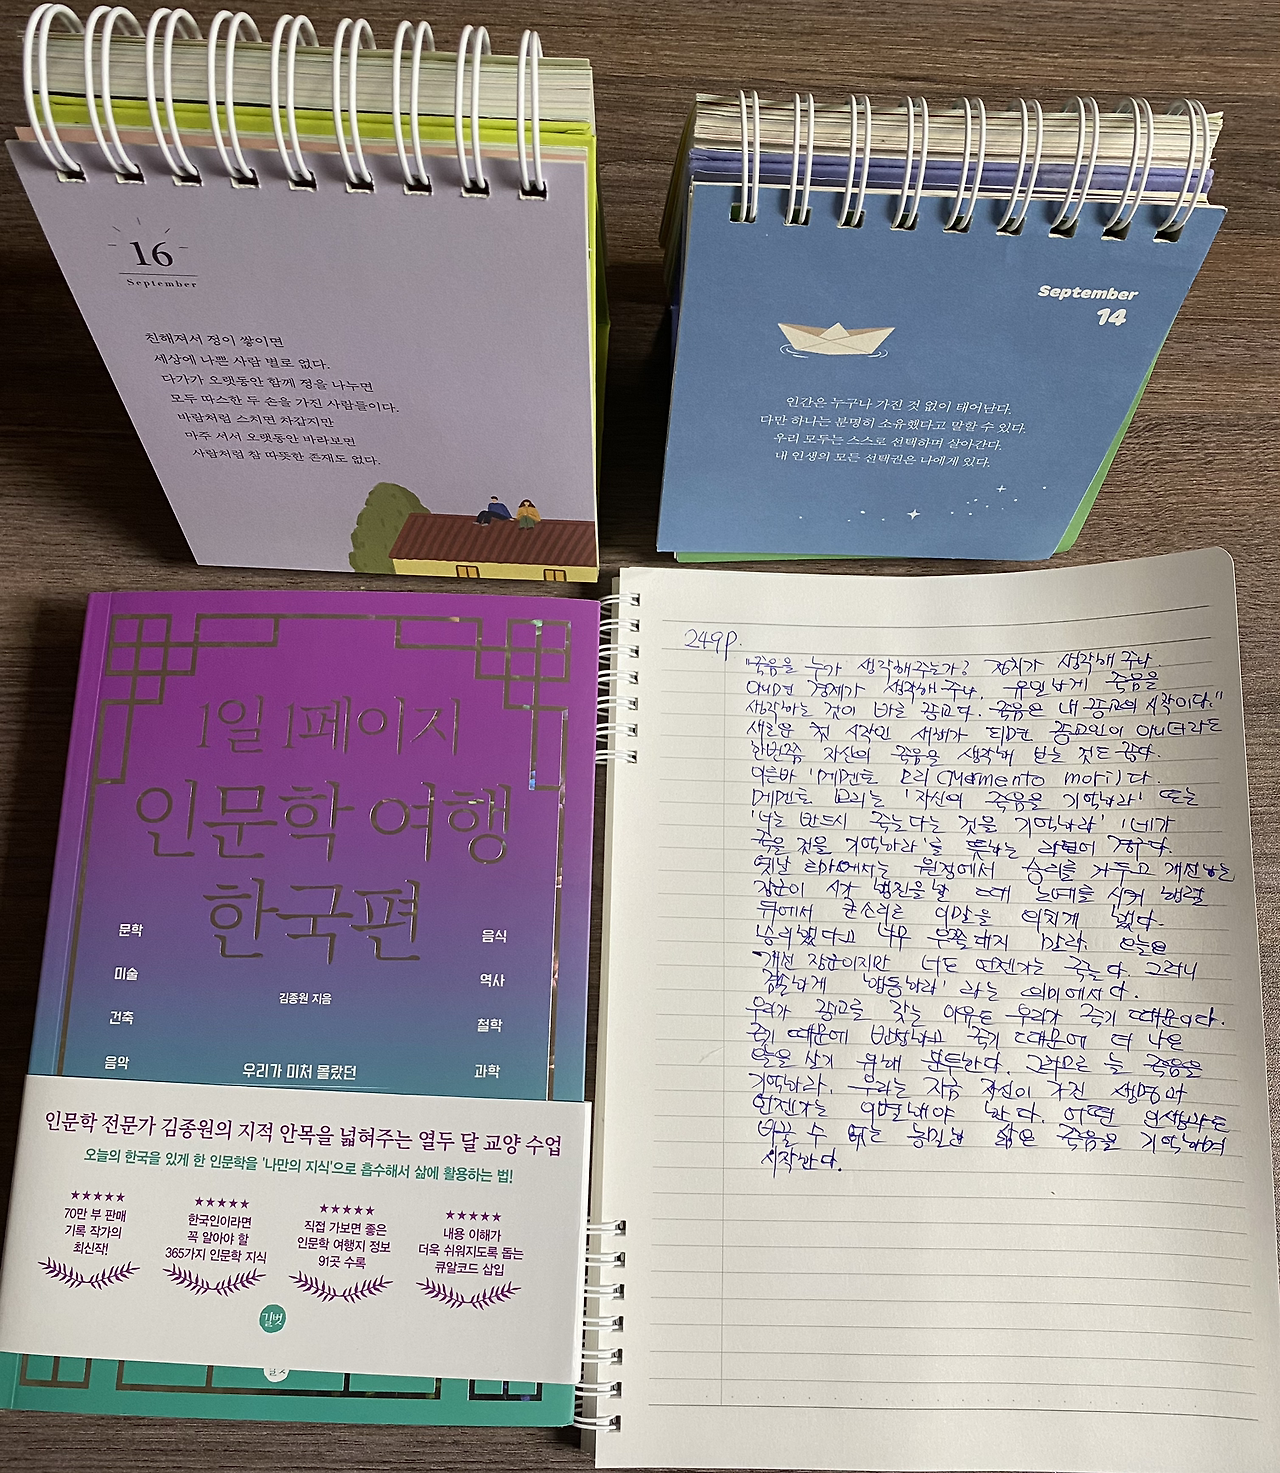 16
September
친해져서 정이 쌓이면
세상에 나쁜 사람 별로 없다.
다가가 오랫동안 함께 정을 나누면
모두 따스한 두 손을 가진 사람들이다.
바람처럼 스치면 차갑지만
마주 서서 오랫동안 바라보면
사람처럼 참 따뜻한 존재도 없다.
September
14
인간은 누구나 가진 것 없이 태어난다.
다만 하나는 분명히 소유했다고 말할 수 있다.
우리 모두는 스스로 선택하며 살아간다.
내 인생의 모든 선택권은 나에게 있다.
1일 1페이지
인문학 여행
한국편
문학
미술
건축
음악
음식
역사
철학
과학
김종원 지음
우리가 미처 몰랐던
인문학 전문가 김종원의 지적 안목을 넓혀주는 열두 달 교양 수업
오늘의 한국을 있게 한 인문학을 '나만의 지식'으로 흡수해서 삶에 활용하는 법!
70만 부 판매
기록 작가의
최신작!
한국인이라면
꼭 알아야 할
365가지 인문학 지식
직접 가보면 좋은
인문학 여행지 정보
91곳 수록
내용 이해가
더욱 쉬워지도록 돕는
큐알코드 삽입
길벗
249P.
"죽음을 누가 생각해주는가? 정치가 생각해 주나
아니면 경제가 생각해 주나. 유일하게 죽음을
생각하는 것이 바로 종교다. 죽음은 내 종교의 시작이다."
새로운 첫 시작인 새해가 되면 종교인이 아니더라도
한번쯤 자신의 죽음을 생각해 보는 것도 좋다.
이른바 '메멘토 모리(Memento mori)다.
메멘토 모리는 '자신의 죽음을 기억하라' 또는
'너는 반드시 죽는다는 것을 기억하라' '네가
죽을 것을 기억하라'를 뜻하는 라틴어 경구다.
옛날 로마에서는 원정에서 승리를 거두고 개선하는
장군이 시가 행진을 할 때 노예를 시켜 행렬
뒤에서 큰소리로 이말을 외치게 했다.
승리했다고 너무 우쭐대지 말라. 오늘은
개선 장군이지만 너도 언젠가는 죽는다. 그러니
겸손하게 행동하라' 라는 의미에서다.
우리가 종교를 갖는 이유도 우리가 죽기 때문이다.
죽기 때문에 반성하고 죽기 때문에 더 나은
삶을 살기 위해 분투한다. 그러므로 늘 죽음을
기억하라. 우리는 지금 자신이 가진 생명과
언젠가는 이별해야 한다. 어떤 인생과도
바꿀 수 없는 농밀한 삶은 죽음을 기억하며
시작한다.